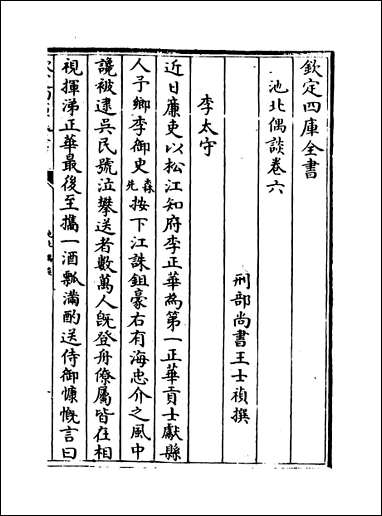 欽定四庫全書
池北偶談卷六
刑部尚書王士禎撰
李太守
近日廉吏以松江知府李正華為第一正華貢士獻縣
人予鄉李御史森先按下江誅鉏豪右有海忠介之風中
讒被逮吳民號泣攀送者數萬人旣登舟僚屬皆在相
視揮涕正華最後至攜一酒瓢滿酌送侍御慷慨言曰